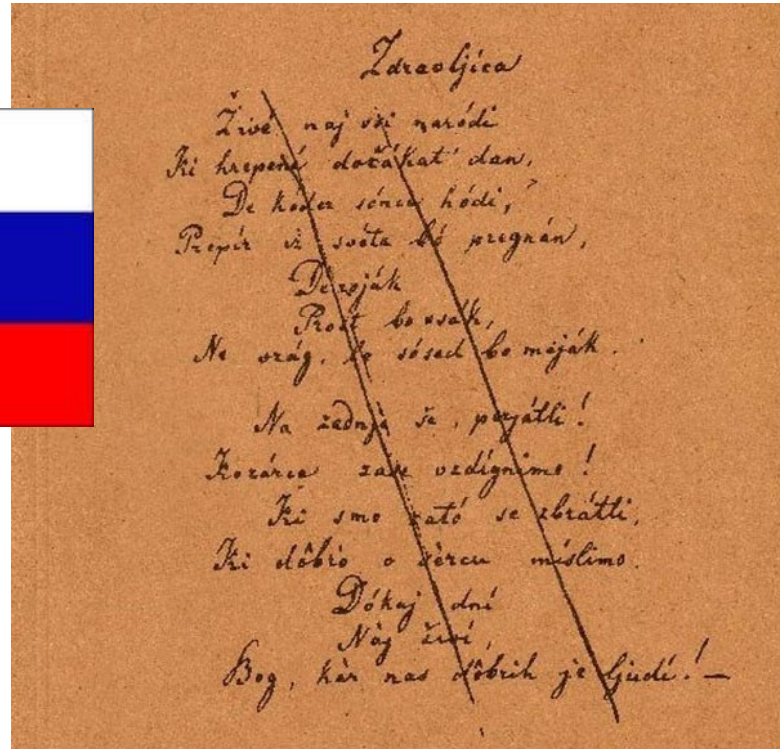 Zdravljica
Živé naj vsi naródi
Ki hrepené dočákat' dan,
De kóder sónce hódi,
Prepír iz svéta bó pregnán,
De roják
Prost bo vsák,
Ne vrág, le sósed bo meják.
Na zadnje še, perjátli!
Kozárce zase vzdígnimo!
Ki smo zató se zbrátli,
Ki dôbro v sèrcu míslimo.
Dókaj dni
Nàj živí,
Bog, kàr nas dôbrih je ljudi! —